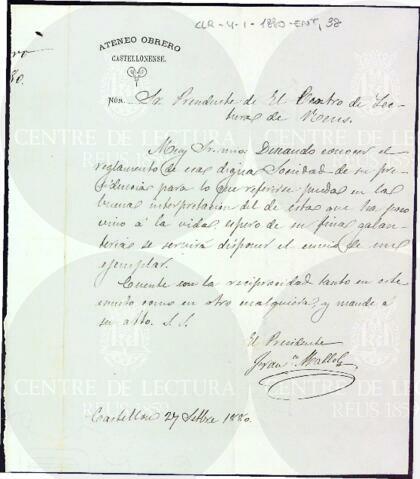 CLR-4-1-1880-ENT, 38
ATENEO OBRERO
CASTELLONENSE.
Núm.
Sr. Presidente de El Centro de Lec-
tura de Reus.
Muy Sr. mio: Deseando conocer el
reglamento de esa digna Sociedad de su pre-
sidencia para lo que referirse pueda en la
buena interpretacion del de esta que ha poco
vino á la vida, espero de su fina galan-
teria se servirá disponer el envio de un
ejemplar.
Cuente con la reciprocidad tanto en este
asunto como en otro cualquiera, y mande á
su atto. S. S.
El Presidente
Castellon 27 Setbre 1880.
CENTRE DE LECTURA
REUS 1859